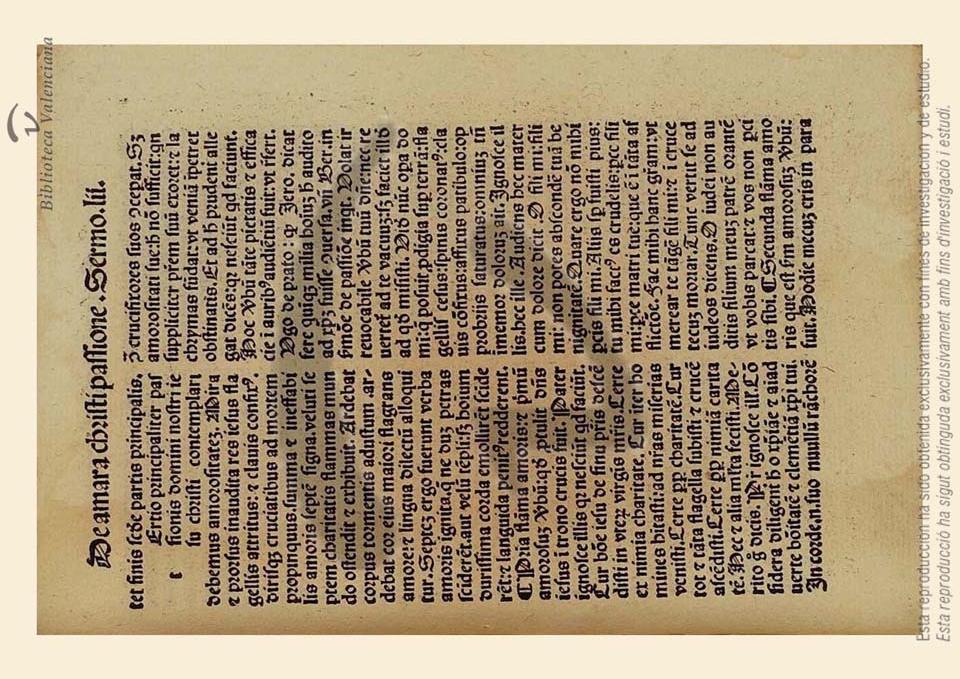 De amara christi passione. Sermo. li.
tet finis scðe partis principalis.
Ertio principaliter pas
sionis domini nostri ie
su christi contemplari
t
debemus amorositatez. Mira
⁊ prorsus inaudita res iesus fla
gellis attritus: ⁊ clauis confix⁹.
dirisqz cruciatibus ad mortem
propinquus. summa ⁊ ineffabi
lis amoris septē signa. velut se
ptem charitatis flammas num
do ostendit ⁊ tribuit. Ardebat
corpus tormentis adustum. ar-
debat cor eius maior: flagrans
amore: ⁊ lingua dilectū alloqui
tur. Septez ergo fuerunt verba
amoris ignita. q̄ ne dum petras
sciderēt. aut velū tēpli: sz hoīum
durissima corda emolirēt scinde
rēt: ⁊ languida poli⁹ redderent.
¶ Pria flāma amoris: ⁊ pmū
amorosuz vbū: qð ptulit dn̄s
iesus i trono crucis fuit. Pater
ignosce illis qr nesciūt qd faciūt.
Cur bōe iesu de sinu pris descē
disti in vterz virgis mris. Certe
ex nimia charitate. Cur iter ho
mines bitasti: ad nras miserias
venisti. Certe pp charitatē. Cur
tot ⁊ tāta flagella subisti ⁊ crucē
ascēdisti. Certe pp nimiā carita
tē. Hec ⁊ alia mlta fecisti. Me-
rito g dicis. Pr ignosce ill'. Cō
sidera diligent h o xpiāe ⁊ aiad
uerte bōitatē ⁊ clemētiā xpi tui.
In corde. n. suo nullū rācorē
ȝ crucifixores suos ɔcepat. Sȝ
amorositati sue: h nō sufficit: qn
suppliciter prem suū exoret: ⁊ la
chrymas fūdat: vt veniā ipetret
obstinatis. Et ad h prudenti alle
gat dicēs: qr nesciūt qd faciunt.
Hoc vbū tāte pietatis ⁊ effica
cie i aurib⁹ audiētiū fuit: vt rfert.
Ugo de prato: q Jero. dicat
fere quiqz milia homīz h audito
ad xpz fuisse ɔuersa. vn̄ Ber. in
smōe de passiōe inqt. Volat ir
reuocabile vbū tuū dne: nec re
uertet ad te vacuuz: sz faciet illð
ad qð misisti. Vid nūc opa do
mi: q posuit pdigia sup terrā: fla
gellis cesus: spinis coronat⁹: cla
uis cōfixus: affixus patibulo: op
probriis saturatus: omniuz tn̄
immemor doloruz ait: Ignosce il
lis. hec ille. Audiens hec mater
cum dolore dicit. O fili mi: fili
mi: non potes abscondē tuā be
nignitatē. Quare ergo nō mihi
pcis fili mi. Aliis sp fuisti pius:
tu mihi fact⁹ es crudelis: pce fili
mi: pce matri tue: que ē i tāta af
flictōe. Fac mihi hanc gram: vt
merear te tāgē fili mi: ⁊ i cruce
tecuz morar. Tunc vertit se ad
iudeos dicens. O iudei non au
ditis filium meuz patrē orantē
vt vobis parcat: ⁊ vos non pci
tis sibi. ¶ Secunda flāma amo
ris que est sm amorosuz vbū:
fuit. Hodie mecuz eris in para
Biblioteca Valenciana
Esta reproducción ha sido obtenida exclusivamente con fines de investigación y de estudio.
Esta reproducció ha sigut obtinguda exclusivament amb fins d'investigació i estudi.